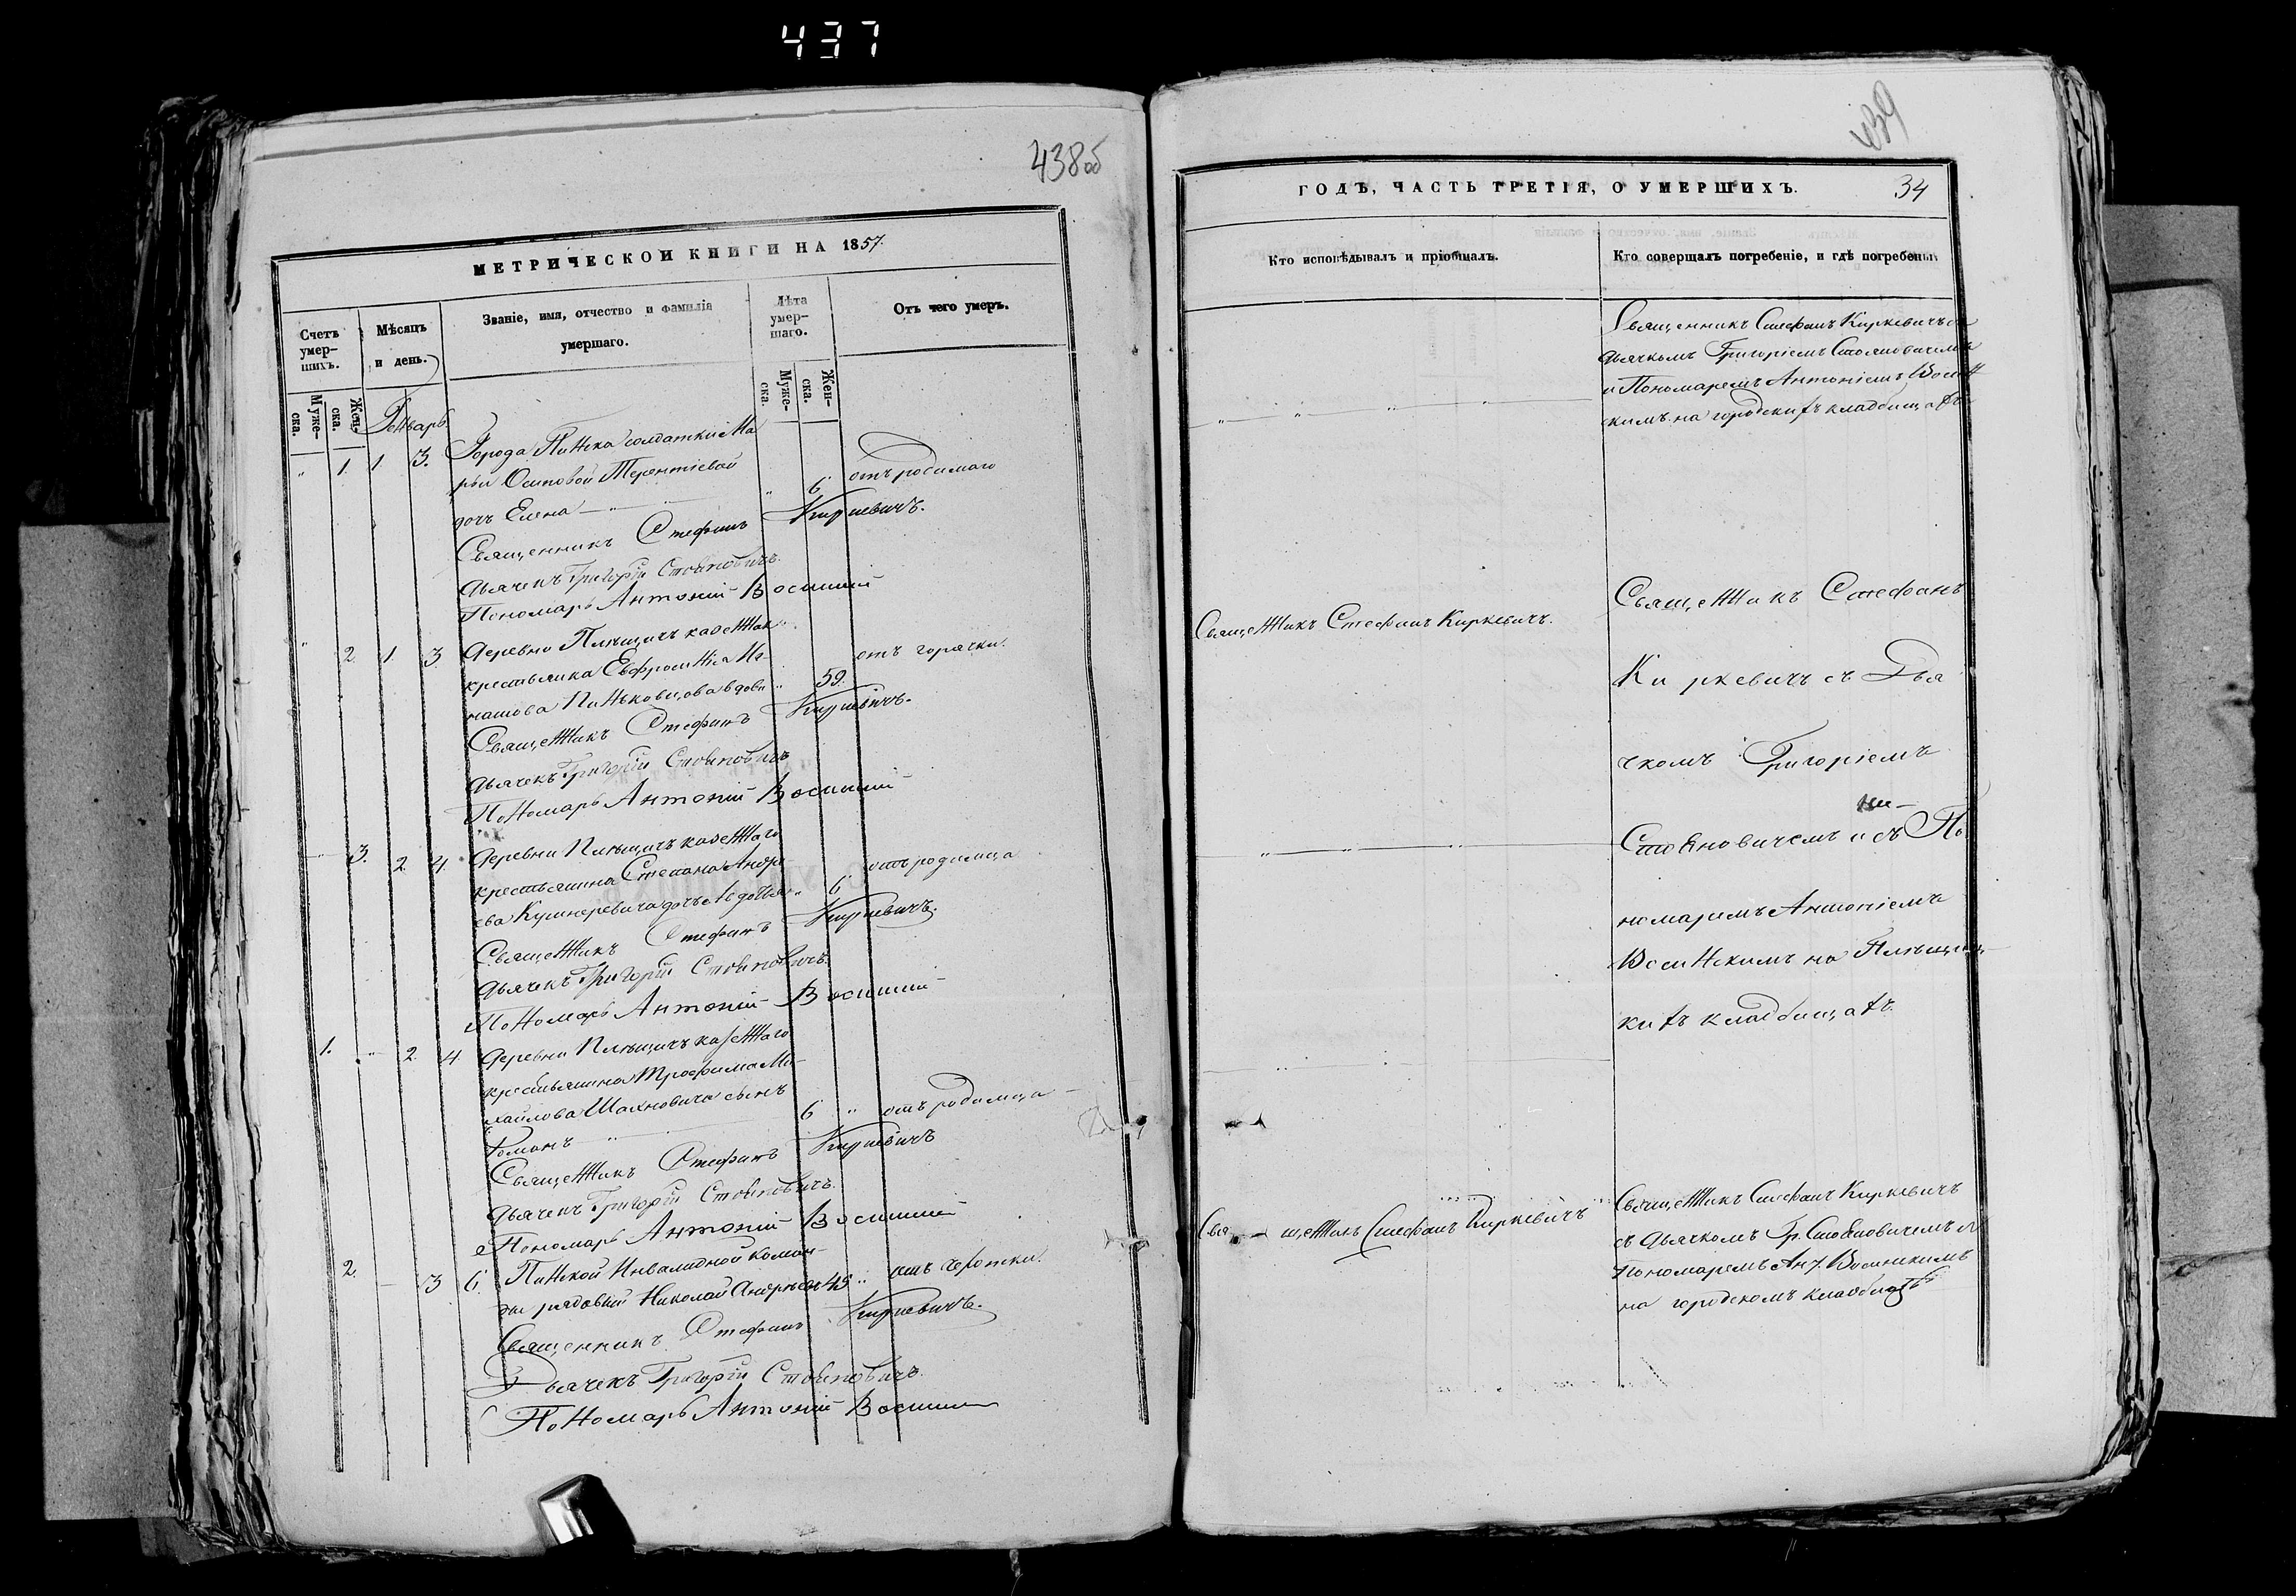 437
438об
МЕТРИЧЕСКОЙ КНИГИ НА 1857.
Счетъ умер-шихъ.
Мѣсяцъ и день.
Званіе, имя, отчество и фамилія умершаго.
Лѣта умер-шаго.
Отъ чего умеръ.
Муже-ска.
Жен-ска.
Муже-ска.
Жен-ска.
Генварь
" 1. 1 3. Города Пинска солдатки Ма
рьи Осиповой Терентіевой
дочь Елена " 6 отъ родимаго
Священникъ Стефанъ Киркевичъ.
Дьячекъ Григорій Стояновичъ.
Пономарь Антоній
" 2. 1. 3 Деревни казенная
крестьянка Евфросинія
вдова " 59. отъ горячки.
Священникъ Стефанъ Киркевичъ.
Дьячекъ Григорій Стояновичъ
Пономарь Антоній
" 3. 2. 4. Деревни казеннаго
крестьянина Степана Андре
ева дочь " 6 отъ родимца
Священникъ Стефанъ Киркевичъ.
Дьячекъ Григорій Стояновичъ.
Пономарь Антоній
1. " 2. 4. Деревни казеннаго
крестьянина Трофима Ми-
хайлова сынъ
Романъ 6 " отъ родимца
Священникъ Стефанъ Киркевичъ
Дьячекъ Григорій Стояновичъ.
Пономарь Антоній
2. — 3 6. Пинской Инвалидной Коман-
ды рядовый Николай Андреевъ 45 " отъ чахотки.
Священникъ Стефанъ Киркевичъ.
Дьячекъ Григорій Стояновичъ.
Пономарь Антоній
439
ГОДЪ, ЧАСТЬ ТРЕТІЯ, О УМЕРШИХЪ. 34
Кто исповѣдывалъ и пріобщалъ.
Кто совершалъ погребеніе, и гдѣ погребены.
Священникъ Стефанъ Киркевичъ съ
дьячкомъ Григоріемъ Стояновичемъ
и Пономаремъ Антоніемъ
кимъ на городскихъ кладбищахъ
Священникъ Стефанъ Киркевичъ.
Священникъ Стефанъ
Киркевичъ съ Дья
чкомъ Григоріемъ
Стояновичемъ и съ По
номаремъ Антоніемъ
на
кихъ кладбищахъ.
Священникъ Стефанъ Киркевичъ
Священникъ Стефанъ Киркевичъ
съ дьячкомъ Гр. Стояновичемъ и
Пономаремъ Ант.
на городскомъ кладбищѣ